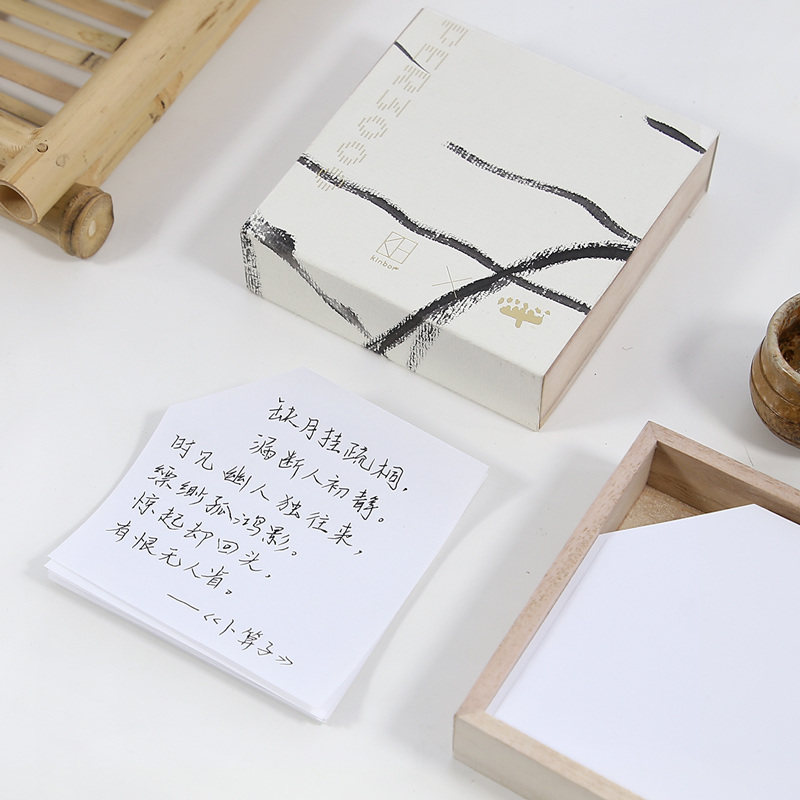 kinbor
缺月挂疏桐，
漏断人初静。
时见幽人独往来，
缥缈孤鸿影。
惊起却回头，
有恨无人省。
——《卜算子》